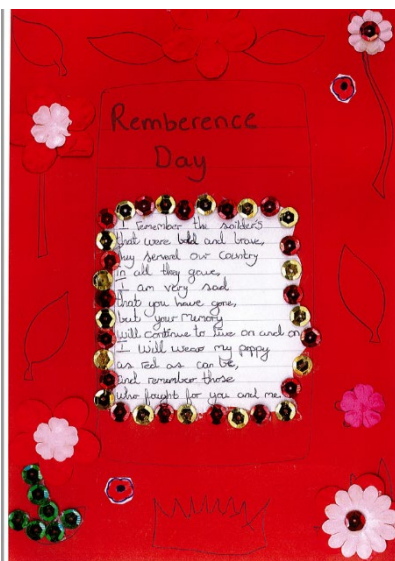 Remberence
Day
I remember the soilders
that were bold and brave,
they served our country
in all they gave,
I am very sad
that you have gone,
but your memory
will continue to live on and on
I will wear my poppy
as red as can be,
and remember those
who fought for you and me.